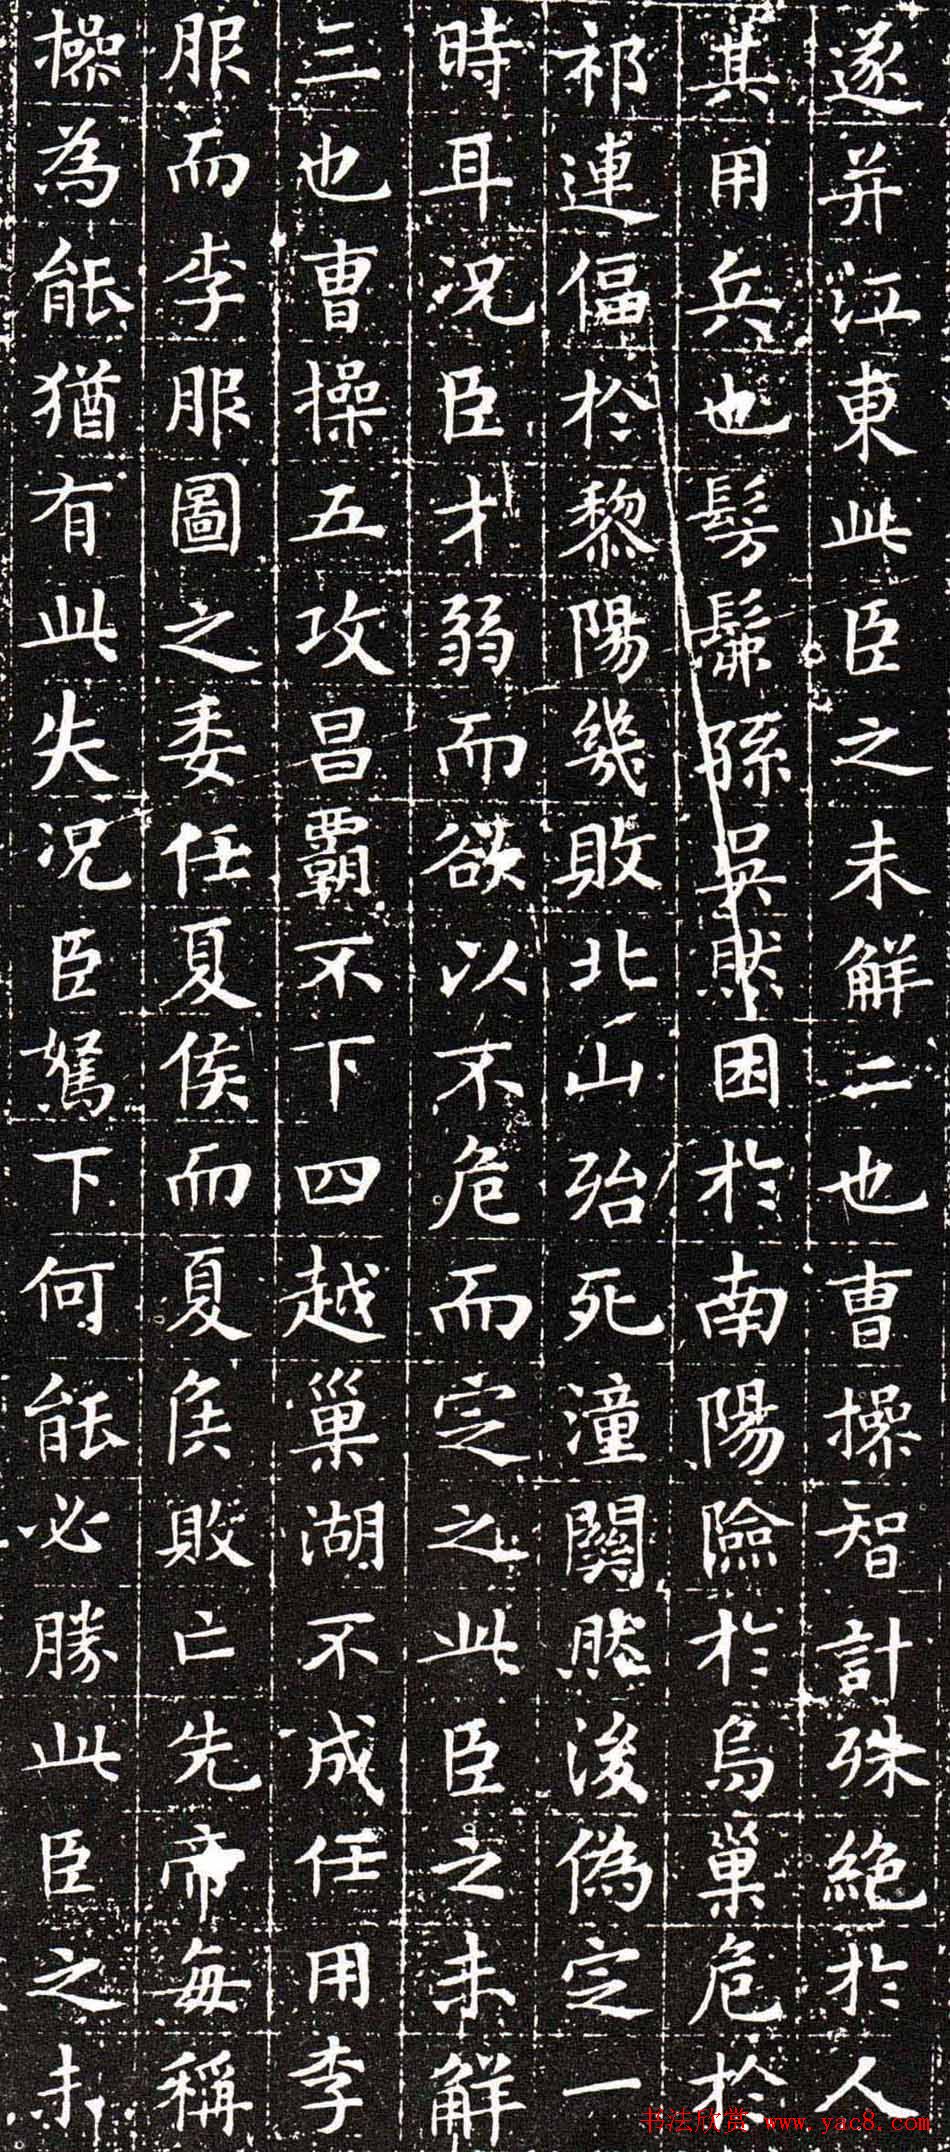 遂并江東此臣之未解二也曹操智計殊絶於人
其用兵也髣髴孫吳然困於南陽險於烏巢危於
祁連偪於黎陽幾敗北山殆死潼關然後偽定一
時耳況臣才弱而欲以不危而定之此臣之未解
三也曹操五攻昌霸不下四越巢湖不成任用李
服而李服圖之委任夏侯而夏侯敗亡先帝每稱
操為能猶有此失況臣駑下何能必勝此臣之未
书法欣赏 www.yac8.com